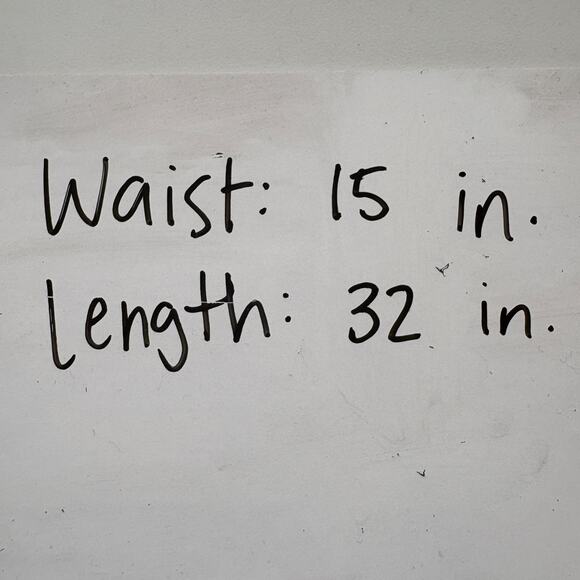 Waist: 15 in.
Length: 32 in.